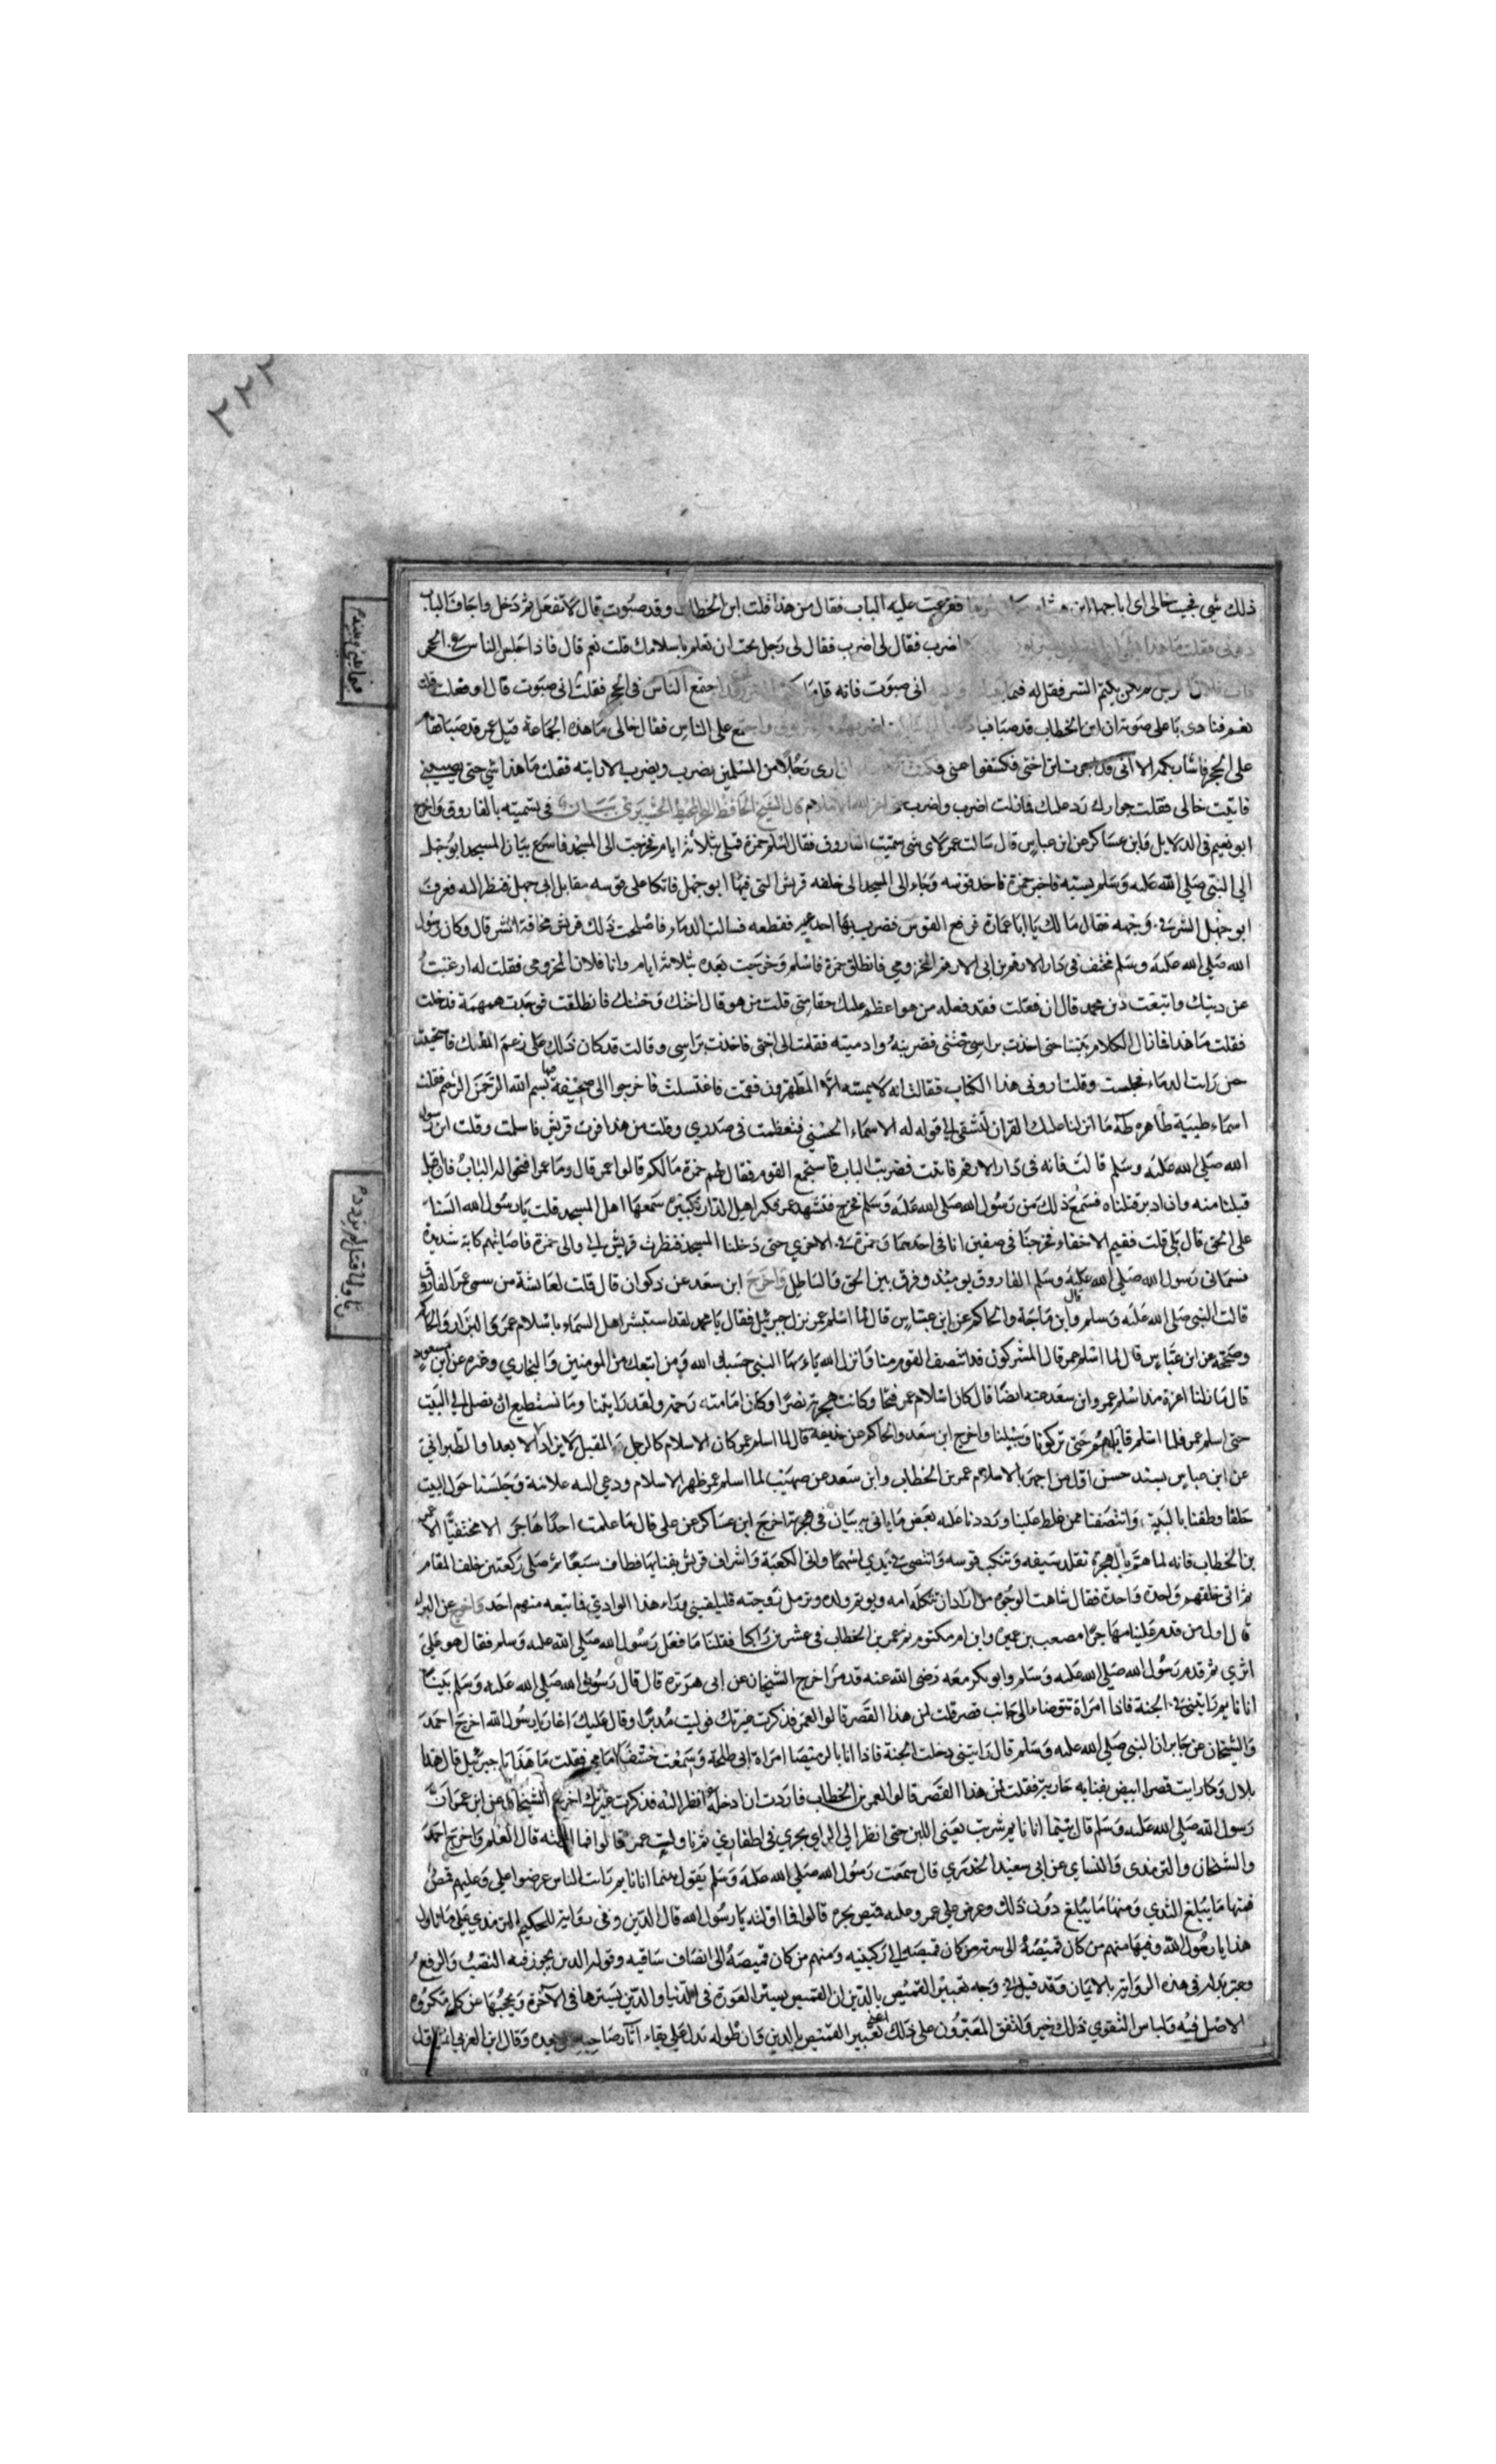 ٢٢٢
ذلك شي فجيت خالي اي ابا جهل ابن هشام فقرعت عليه الباب فقال من هذا قلت ابن الخطاب وقد صبوت قال لا تفعل ثم دخل واجاف الباب
دوني فقلت ما هذا اضرب فقال لي اضرب فقال لي رجل تحب ان تعلم باسلامك قلت نعم قال فاذا جلس الناس في الحجر
يكتم السر فقل له فيما اني صبوت فانه قلما اجتمع الناس في الحجر فقلت اني صبوت قال او فعلت قلت
نعم فنادى باعلى صوته ان ابن الخطاب قد صبا على الناس فقال خالي ما هذه الجماعة قيل عمر قد صبا فقام
على الحجر فاشار بكمه الا اني قد اجرت ابن اختي فكشفوا عني ارى رجلا من المسلمين يضرب ويضرب الا رايته فقلت ما هذا شي حتى يصيبني
فاتيت خالي فقلت جوارك رد عليك فما زلت اضرب واضرب قال الشيخ الحافظ في تسميته بالفاروق واخرج
ابو نعيم في الدلايل وابن عساكر عن ابن عباس قال سالت عمر لاي شي سميت الفاروق فقال اسلم حمزة قبلي بثلاثة ايام فخرجت الى المسجد فاسرع ابو جهل
الي النبي صلي الله عليه وسلم يسبه فاخبر حمزة فاخذ قوسه وجاء الى المسجد الى حلقه قريش التي فيها ابو جهل فاتكا على قوسه مقابل ابي جهل فنظر اليه فعرف
ابو جهل الشر في وجهه فقال مالك يا ابا عمارة فرفع القوس فضرب بها فقطعه فسالت الدماء فاصلحت ذلك قريش مخافة الشر قال وكان رسول
الله صلي الله عليه وسلم مختف في دار الارقم بن ابي الارقم المخزومي فانطلق حمزة فاسلم وخرجت بعده بثلاثة ايام وانا فلان المخزومي فقلت له ارغبت
عن دينك واتبعت دين محمد قال ان فعلت فقد فعله من هو اعظم عليك حقا مني قلت من هو قال اختك وختنك فانطلقت فوجدت همهمة فدخلت
فقلت ما هذا فما زال الكلام بيننا حتى اخذت براس ختني فضربته وادميته فقامت الى اختي فاخذت براسي وقالت قد كان ذلك على زعم انفك فاستحييت
حين رايت الدماء فجلست وقلت اروني هذا الكتاب فقالت انه لا يمسه الا المطهرون فقمت فاغتسلت فاخرجوا الي صحيفة فيها بسم الله الرحمن الرحيم فقلت
اسماء طيبة طاهره طه ما انزلنا عليك القران لتشقى الي قوله له الاسماء الحسنى فتعظمت في صدري وقلت من هذا فرت قريش فاسلمت وقلت اين رسول
الله صلي الله عليه وسلم قالت فانه في دار الارقم فاتيت فضربت الباب فاستجمع القوم فقال لهم حمزة مالكم قالوا عمر قال وما عمر افتحوا له الباب فان اقبل
قبلنا منه وان ادبر قتلناه فسمع ذلك رسول الله صلي الله عليه وسلم فخرج فتشهد عمر فكبر اهل الدار تكبيرة سمعها اهل المسجد قلت يا رسول الله السنا
على الحق قال بلى قلت ففيم الاخفاء فخرجنا في صفين انا في احدهما وحمزة في الاخري حتى دخلنا المسجد فنظرت قريش الي والى حمزة فاصابتهم كابة شديدة
فسماني رسول الله صلي الله عليه وسلم الفاروق يوميئذ وفرق بين الحق والباطل واخرج ابن سعد عن ذكوان قال قلت لعائشة من سمى عمر الفاروق
قالت النبي صلي الله عليه وسلم وابن ماجة والحاكم عن ابن عباس قال لما اسلم عمر نزل جبرئيل فقال يا محمد لقد استبشر اهل السماء باسلام عمر والبزار والحاكم
وصححه عن ابن عباس قال لما اسلم عمر قال المشركون قد انتصف القوم منا وانزل الله ياءيها النبي حسبك الله ومن اتبعك من المومنين والبخاري وغيره عن ابن مسعود
قال ما زلنا اعزة منذ اسلم عمر وابن سعد عنه ايضا قال كان اسلام عمر فتحا وكانت هجرته نصرا وكان امامته رحمة ولقد رايتنا وما نستطيع ان نصل الي البيت
حتى اسلم عمر فلما اسلم قاتلهم حتى تركونا وسبيلنا واخرج ابن سعد والحاكم عن حذيفة قال لما اسلم عمر كان الاسلام كالرجل المقبل لا يزداد الا بعدا والطبراني
عن ابن عباس بسند حسن اول من اجهر بالاسلام عمر بن الخطاب وابن سعد عن صهيب لما اسلم عمر ظهر الاسلام ودعي اليه علانية وجلسنا حول البيت
حلقا وطفنا بالبيت وانتصفنا ممن غلظ علينا ورددنا عليه بعض ما ياتي به بيان في هجرته اخرج ابن عساكر عن علي قال ما علمت احدا هاجر الا مختفيا الا عمر
بن الخطاب فانه لما هم بالهجرة تقلد سيفه وتنكب قوسه وانتضى في يدي اسهما واتى الكعبة واشراف قريش بفنايها فطاف سبعا ثم صلى ركعتين خلف المقام
ثم اتى حلقهم واحدة واحدة فقال شاهت الوجوه من اراد ان تثكله امه ويوتم ولده وترمل زوجته فليلقيني وراء هذا الوادي فما تبعه منهم احد واخرج عن البراء
قال اول من قدم علينا مهاجرا مصعب بن عمير وابن ام مكتوم ثم عمر بن الخطاب في عشرين راكبا فقلنا ما فعل رسول الله صلي الله عليه وسلم فقال هو على
اثري ثم قدم رسول الله صلي الله عليه وسلم وابو بكر معه رضي الله عنه اخرج الشيخان عن ابي هريرة قال قال رسول الله صلي الله عليه وسلم بينا
انا نايم رايتني في الجنة فاذا امراة تتوضا الى جانب قصر قلت لمن هذا القصر قالوا لعمر فذكرت غيرتك فوليت مدبرا وقال عليك اغار يا رسول الله اخرج احمد
والشيخان عن جابر ان النبي صلي الله عليه وسلم قال رايتني دخلت الجنة فاذا انا بالرميصا امراة ابي طلحة وسمعت خشفا امامي فقلت ما هذا يا جبرئيل قال هذا
بلال ورايت قصرا ابيض بفنايه جارية فقلت لمن هذا القصر قالوا لعمر بن الخطاب فاردت ان ادخله انظر اليه فذكرت غيرتك اخرج الشيخان عن ابن عمر ان
رسول الله صلي الله عليه وسلم قال بينما انا نايم شربت يعني اللبن حتى انظر الي الري يجري في اظفاري ثم ناولت عمر قالوا فما اولته قال العلم واخرج احمد
والشيخان والترمذي والنساي عن ابي سعيد الخدري قال سمعت رسول الله صلي الله عليه وسلم يقول بينما انا نايم رايت الناس عرضوا علي وعليهم قمص
فمنها ما يبلغ الثدي ومنها ما يبلغ دون ذلك وعرض علي عمر وعليه قميص يجره قالوا فما اولته يا رسول الله قال الدين وفي رواية للحكيم الترمذي على ما تاول
هذا يا رسول الله وفيها منهم من كان قميصه الى سرته ومن كان قميصه الي ركبتيه ومنهم من كان قميصه الى انصاف ساقيه وقوله الدين يجوز فيه النصب والرفع
وعبر بدله في هذه الرواية بالايمان وقد قيل في وجه تعبير القميص بالدين ان القميص يستر العورة في الدنيا والدين يسترها في الآخرة ويحجبها عن كل مكروه
الاصل فيه ولباس التقوى ذلك خير واتفق المعبرون على ذلك اعني تعبير القميص بالدين وان طوله تدل على بقاء آثار صاحبه من بعده وقال ابن العربي انما